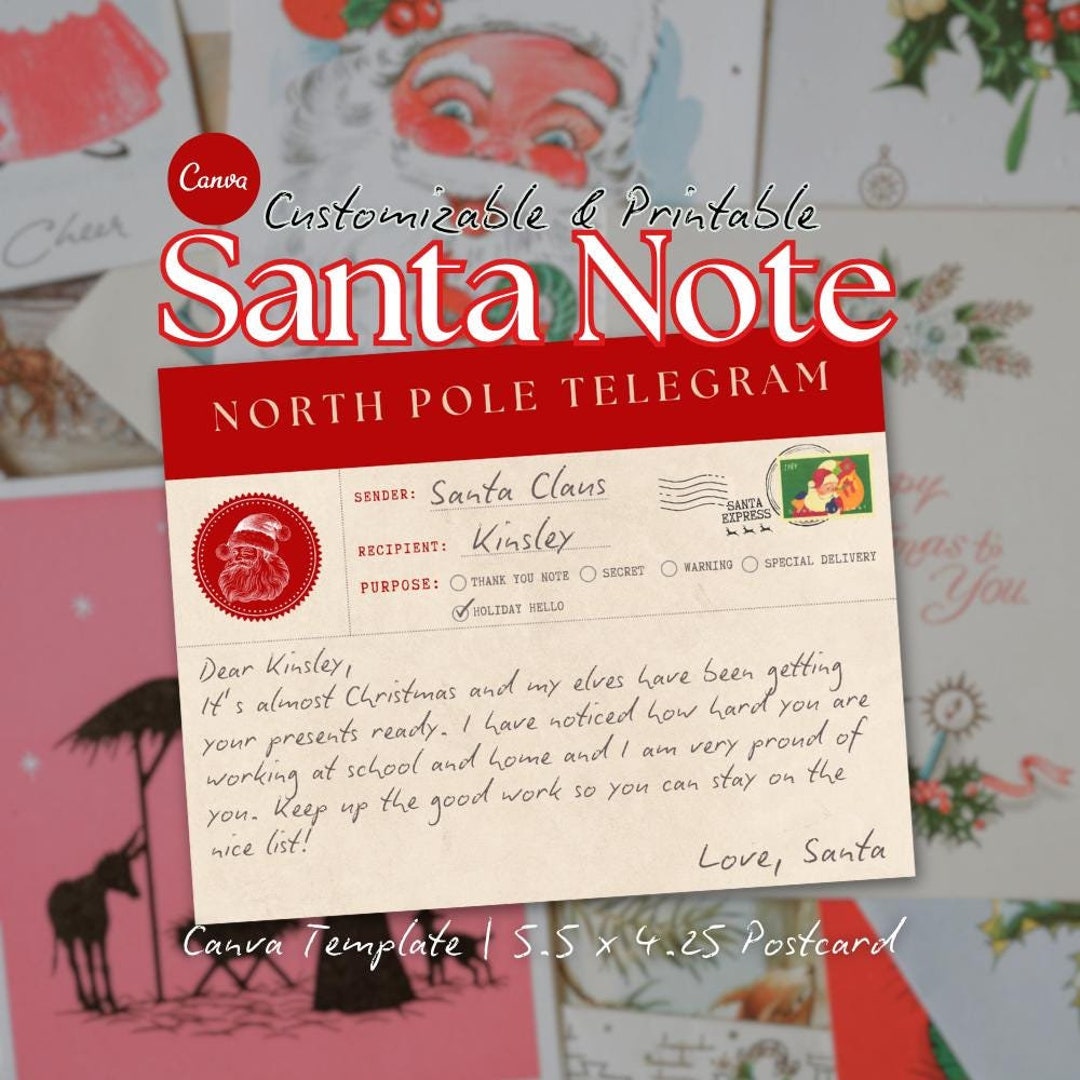 Canva
Customizable & Printable
Santa Note
Cheer
NORTH POLE TELEGRAM
SENDER: Santa Claus
RECIPIENT: Kinsley
PURPOSE: THANK YOU NOTE SECRET WARNING SPECIAL DELIVERY
HOLIDAY HELLO
SANTA
EXPRESS
Dear Kinsley,
It's almost Christmas and my elves have been getting
your presents ready. I have noticed how hard you are
working at school and home and I am very proud of
you. Keep up the good work so you can stay on the
nice list!
Love, Santa
to
You.
Canva Template | 5.5 x 4.25 Postcard